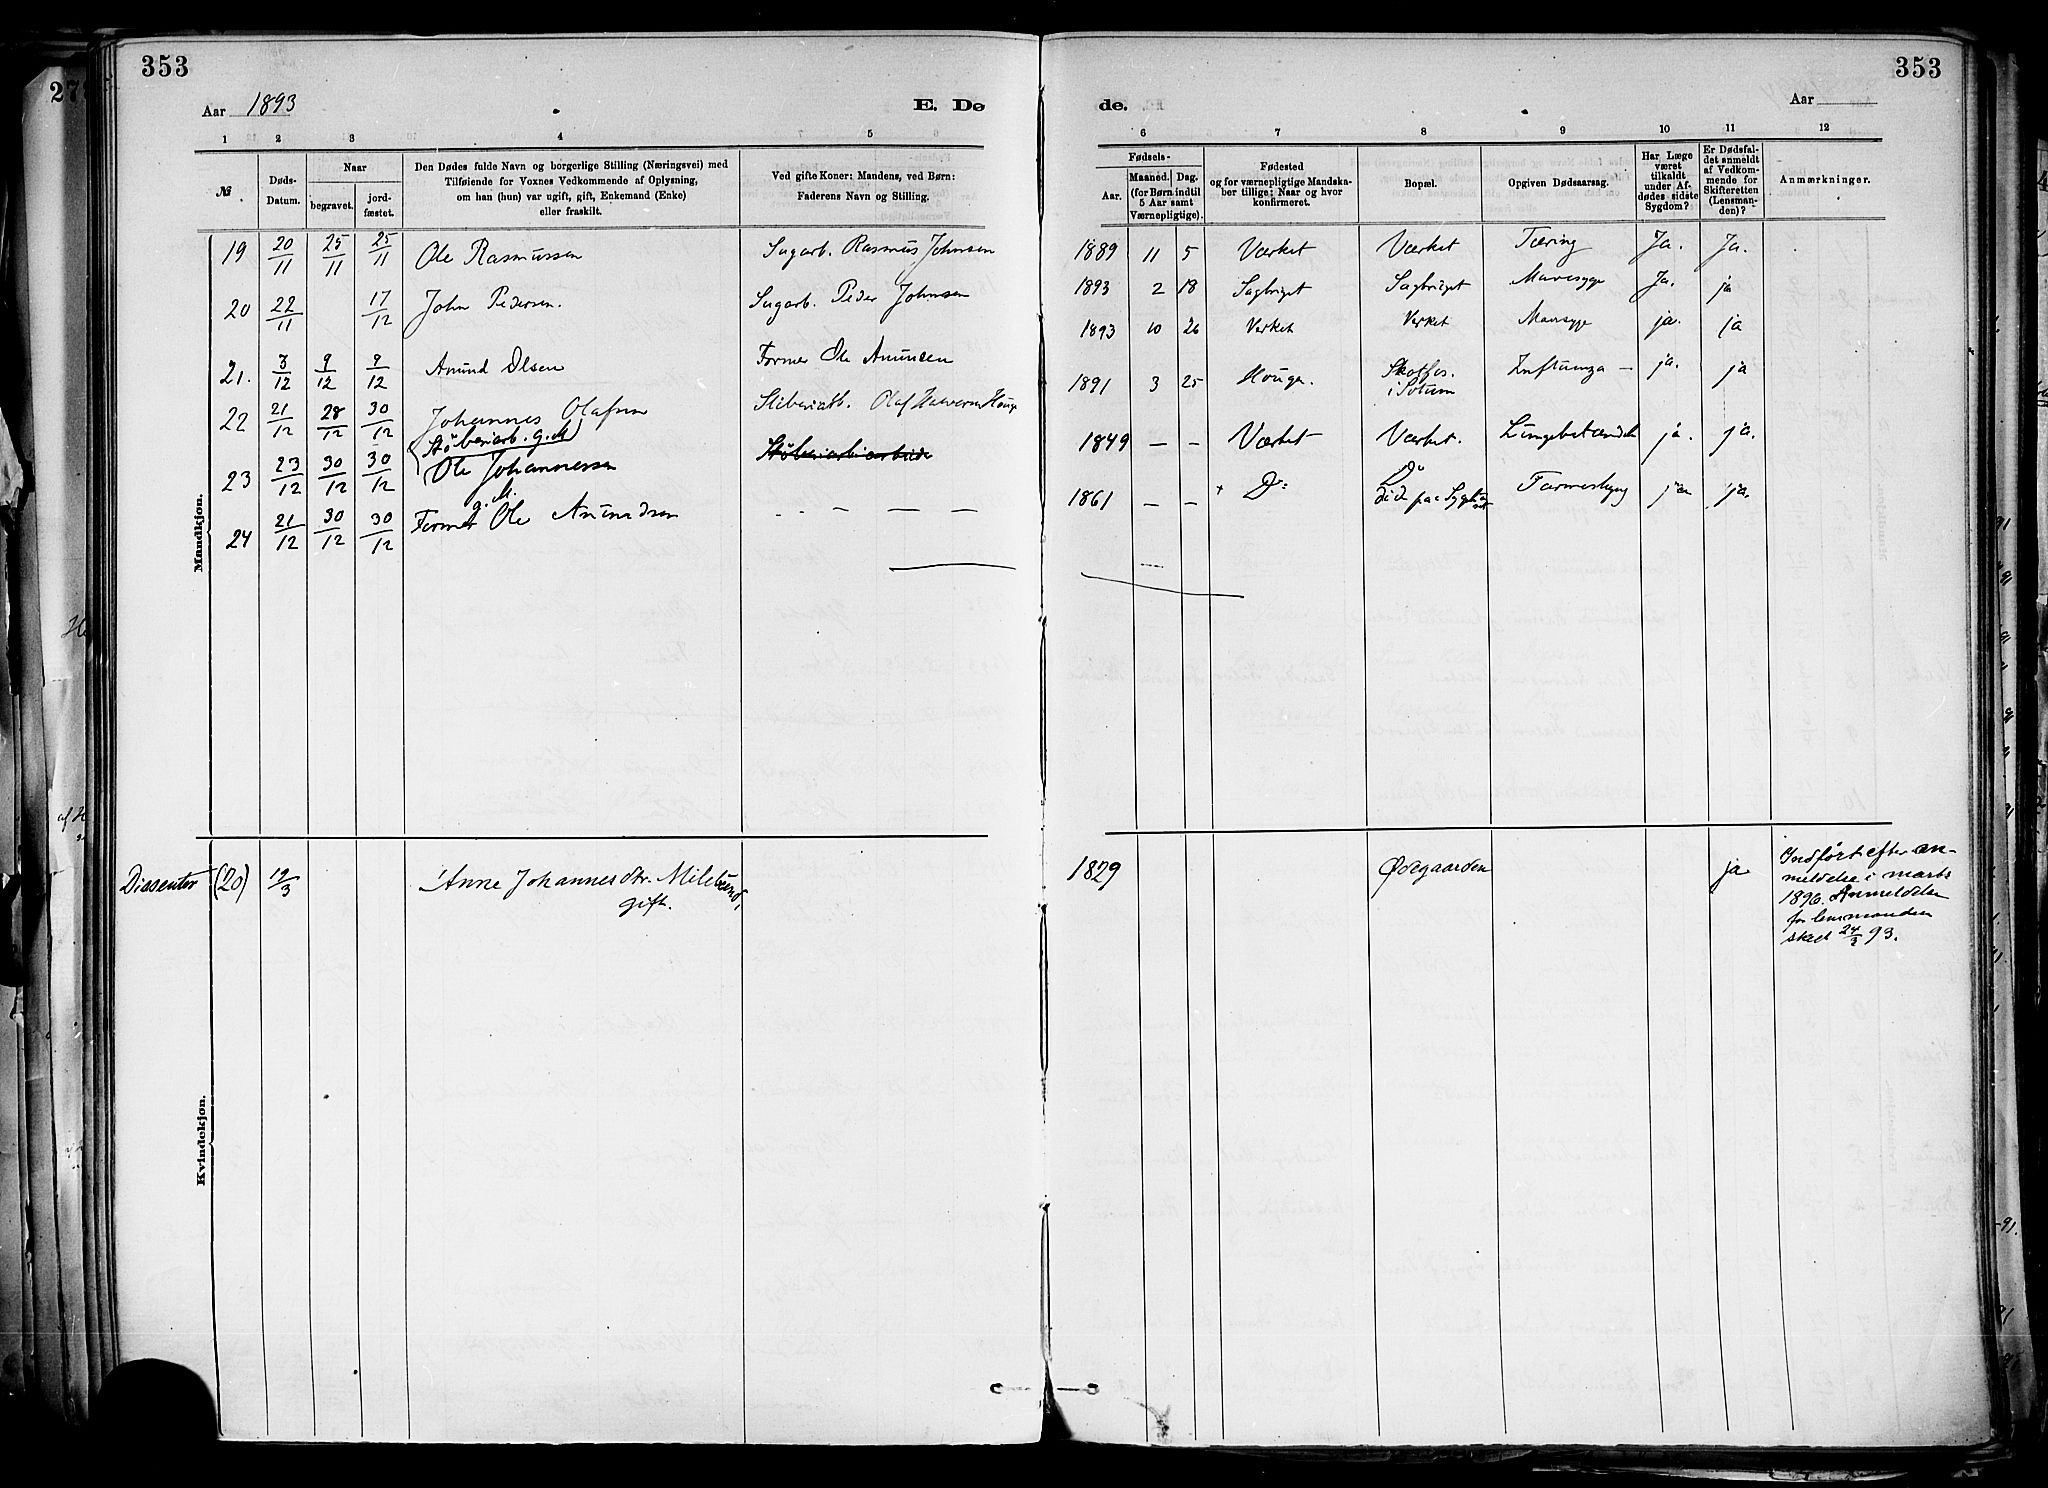 353
353
Aar 1893
E. Dø
de.
Aar
1 2 3 4 5
6 7 8 9 10 11 12
№
Døds-Datum.
Naar
begravet.
jord-fæstet.
Den Dødes fulde Navn og borgerlige Stilling (Næringsvei) med
Tilføiende for Voxnes Vedkommende af Oplysning,
om han (hun) var ugift, gift, Enkemand (Enke)
eller fraskilt.
Ved gifte Koner: Mandens, ved Børn:
Faderens Navn og Stilling.
Fødsels-
Aar.
Maaned. Dag.
(for Børn indtil
5 Aar samt
Værnepligtige).
Fødested
og for værnepligtige Mandska-
ber tillige; Naar og hvor
konfirmeret.
Bopæl.
Opgiven Dødsaarsag.
Har Læge
været
tilkaldt
under Af-
dødes sidste
Sygdom?
Er Dødsfal-
det anmeldt
af Vedkom-
mende for
Skifteretten
(Lensman-
den)?
Anmærkninger.
Mandkjøn.
19 20/11 25/11 25/11 Ole Rasmussen Sagarb. Rasmus Johnsen 1889 11 5 Værket Værket Tæring Ja. Ja.
20 22/11 17/12 John Pedersen. Sagarb. Peder Johnsen 1893 2 18 Sagbruget Sagbruget Mavesyge Ja. ja
21. 3/12 9/12 9/12 Anund Olsen Former Ole Anundsen 1893 10 26 Verket Verket Mavesyge ja. ja
22 21/12 28/12 30/12 Johannes Olafsen Olaf Halvorsen Houge 1891 3 25 Houger. Skotfos. i Solum ja. ja
Støberiarb. g. M
23 23/12 30/12 30/12 Ole Johannessen 1849 — — Værket Værket. Lungebetændelse ja. ja.
g. M.
24 21/12 30/12 30/12 Former Ole Anundsen 1861 — — Do Do ja ja.
Kvindekjøn.
Dissenter (20) 19/3 Anne Johannesdtr. 1829 Ødegaarden ja
gift.
Indført efter an-
meldelse i marts
1896. Anmeldelse
for lensmanden
skeet 24/3 93.